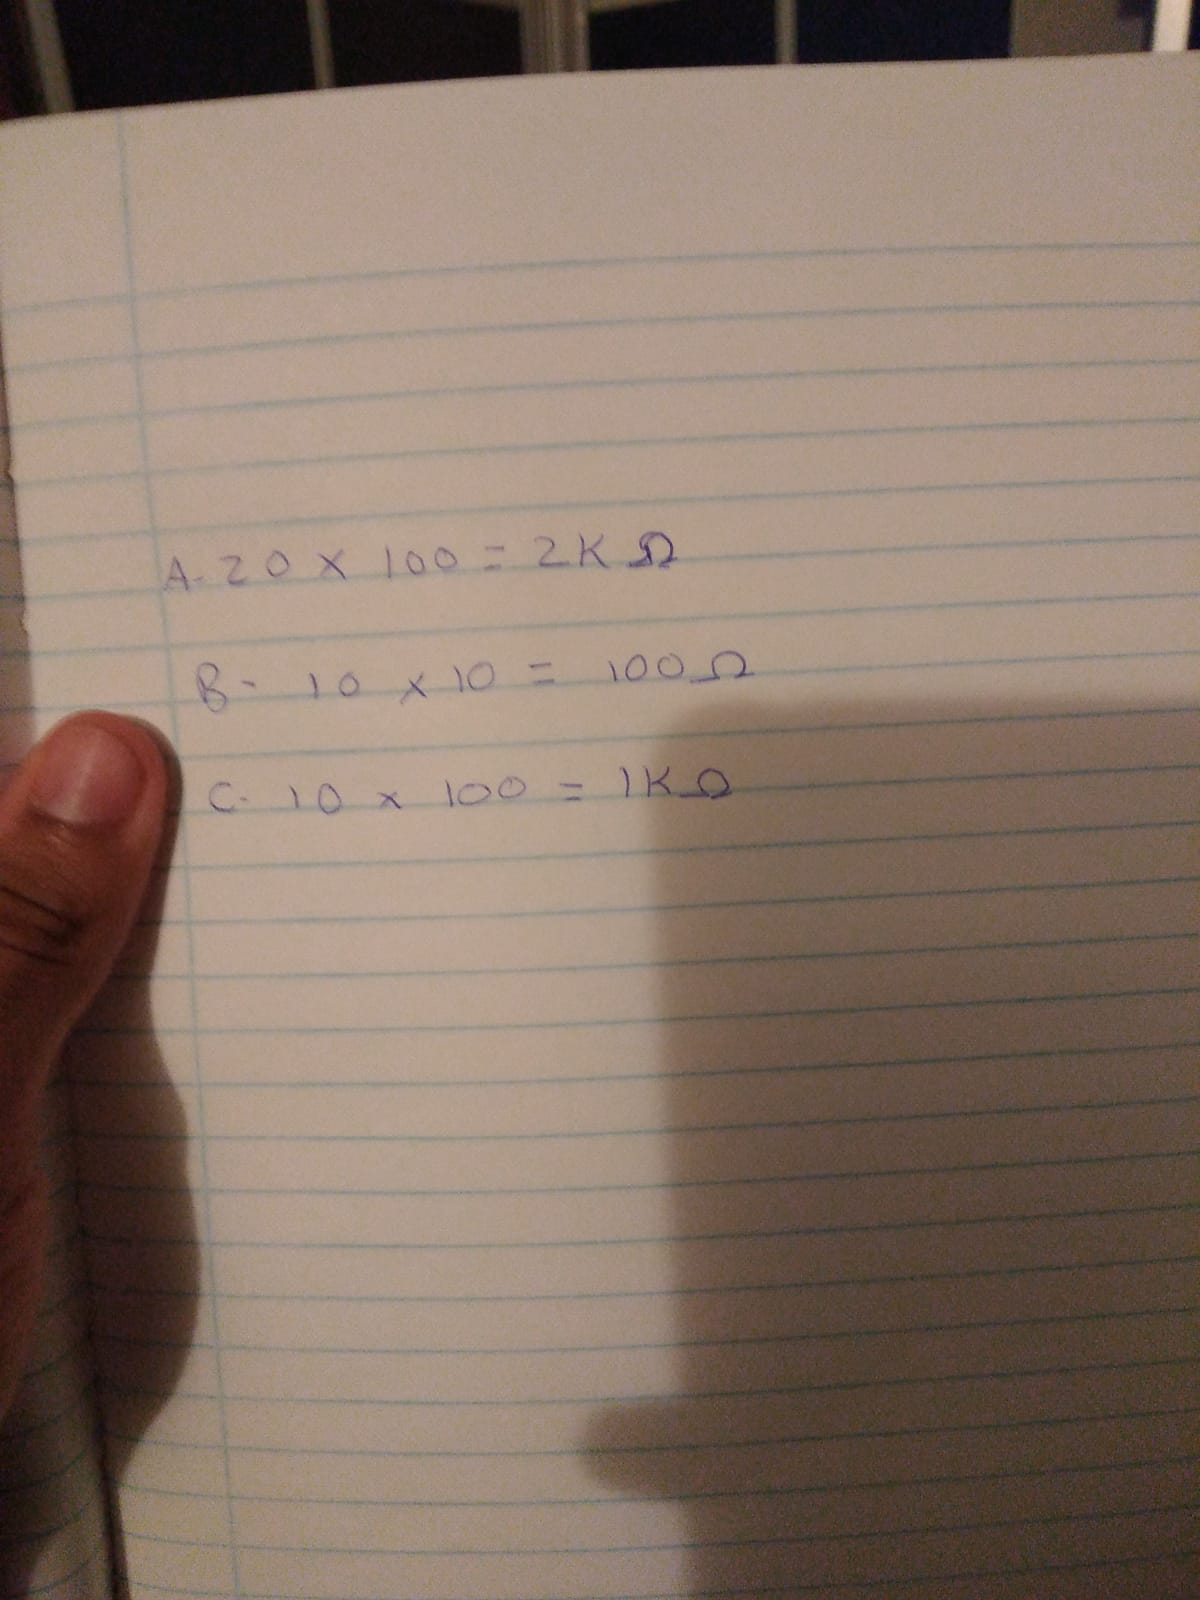 A- 20 x 100 = 2K Ω
B- 10 x 10 = 100 Ω
C- 10 x 100 = 1K Ω